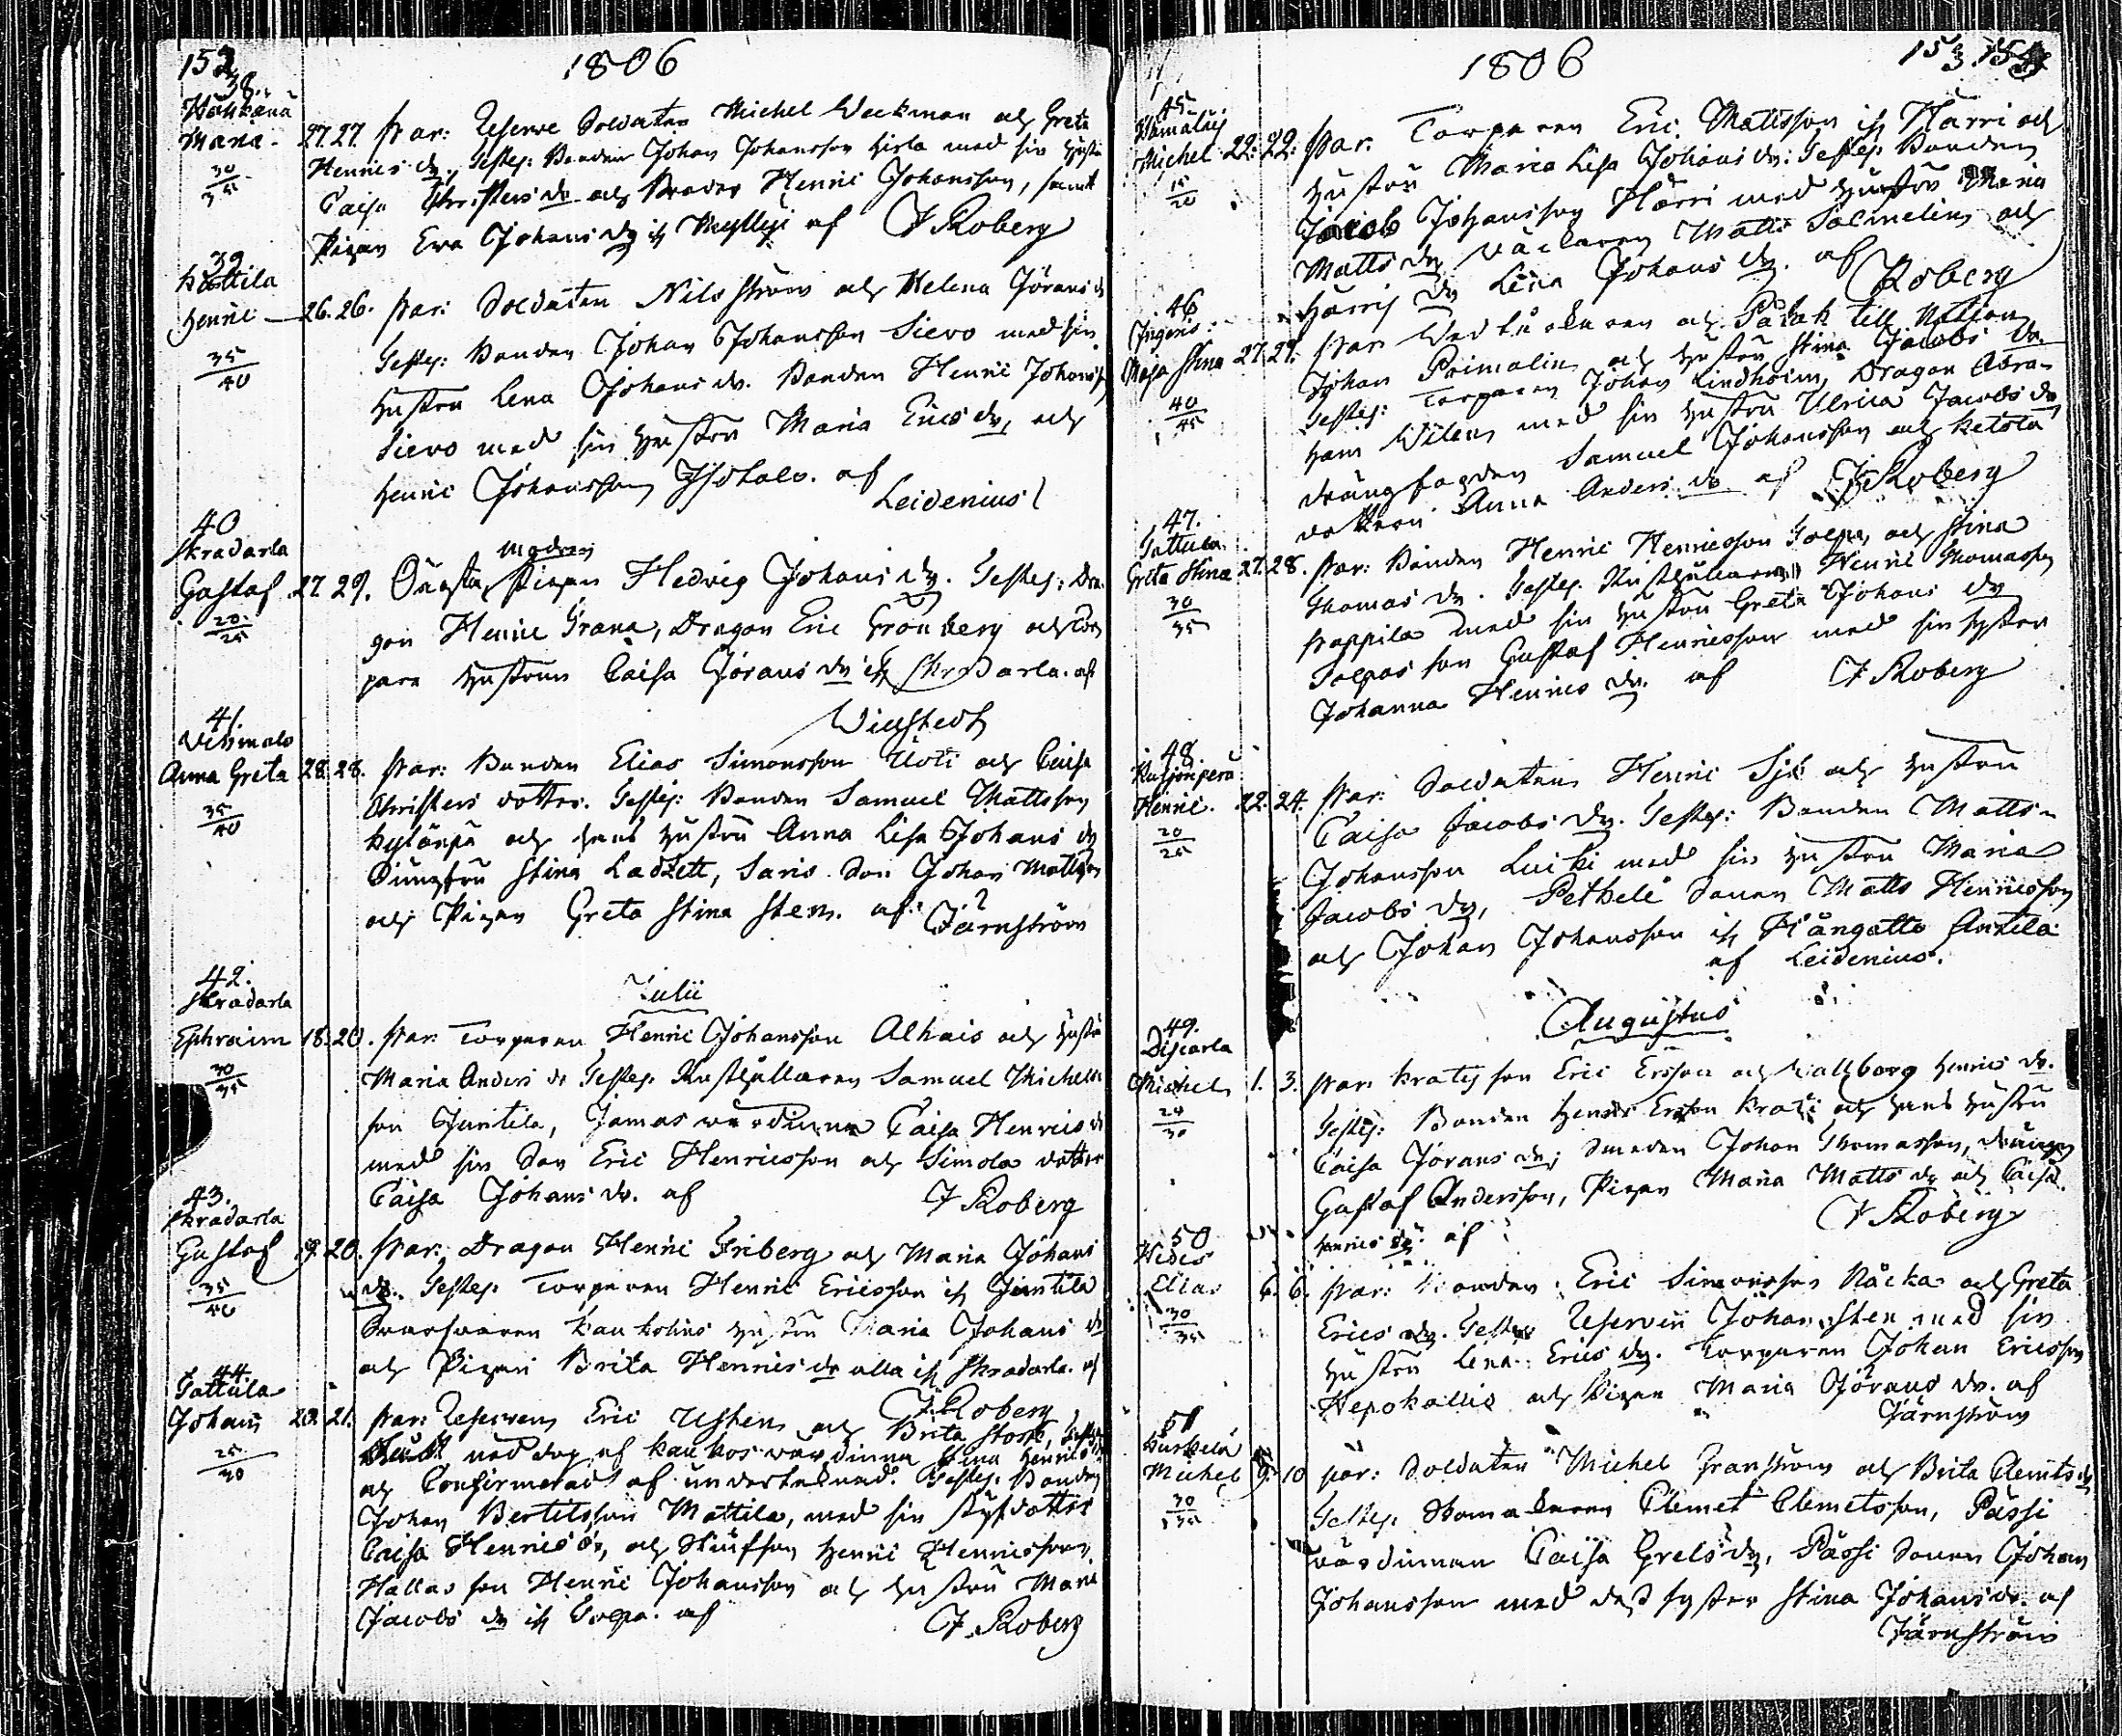 152
1806
38.
Maria. 27. 27. Par: Reserve Soldaten Michel Weckman och Greta
Henrics dr. Testes: Bonden Johan Johansson med sin hustru
Caisa Christers dr och Broder Henric Johansson, samt
Pigan Eva Johans dr if Myllyi af J Roberg
39
Kottila
Henric 26. 26. Par: Soldaten Nils Ström och Helena Jörans dr
35/40
Testes: Bonden Johan Johansson Sievo med sin
hustru Lena Johans dr. Bonden Henric Johanss
Sievo med sin hustru Maria Erics dr, och
Henric Johansson af
Leidenius
40
Skradarla
Gustaf 27 29. Oägta modren Pigan Hedvig Johans dr. Testes: Dra-
20/25
gon Henric Grana, Dragon Eric Grönberg och Tor-
pare hustrun Caisa Jörans dr if Skradarla. af
Wiegstedt
41.
Vehmalo
Anna Greta 28. 28. Par: Bonden Elias Simonsson Uoti och Caisa
35/40
Christers dotter. Testes: Bonden Samuel Mattsson
Kylänpä och hans hustru Anna Lisa Johans dr
Jungfru Stina Ladzett, Saris Son Johan Mattsson
och Pigan Greta Stina Sten. af Järnström
Julii
42.
Skradarla
Ephraim 18. 20. Par: Torparen Henric Johansson Alhais och hustru
30/35
Maria Anders dr Testes: Rusthållaren Samuel Michels
son Juntila, Jamas wärdinna Caisa Henrics dr
med sin Son Eric Henricsson och Simola dotter
Caisa Johans dr. af J Roberg
43.
Skradarla
Gustaf 19. 20. Par: Dragon Henric Friberg och Maria Johans
35/40
dr. Testes: Torparen Henric Ericsson if Juntila
Kaukolius hustru Maria Johans dr
och Pigan Brita Henrics dr alla if Skradarla. af
J. Roberg
44.
Tattula
Johan 20. 21. Par: Reserven Eric Usten och Brita Stork,
25/30
nöddop af Kaukos wärdinna Stina Henrics dr
och Confirmerad af undertecknad. Testes: Bonden
Johan Bertilsson Mattila, med sin Styfdotter
Caisa Henrics dr, och Styfson Henric Henricsson,
Hallas son Henric Johansson och hustru Maria
Jacobs dr if Soepa. af J. Roberg
1806
153
45
Michel 22. 22. Par. Torparen Eric Mattsson if Härri och
15/20
hustru Maria Lisa Johans dr: Testes: Bonden
Jacob Johansson Härri med hustru Maria
Matts dr Matts Salmelin och
Härris dr Lena Johans dr. af
Roberg
46
Maja Stina 27. 27. Par till Nation
40/45
Johan Primalin och hustru Stina Jacobs dr.
Testes: Torparen Johan Lindholm, Dragon Abra-
ham Wilen med sin hustru Ulrica Jacobs dr
drängfogden Samuel Johansson och Ketola
dottern Anna Anders dr af J Roberg
47.
Tattula
Greta Stina 27. 28. Par: Bonden Henric Henricsson Soepa, och Stina
30/35
Thomas dr. Testes: Rusthållaren Henric Thomasson
Pappila med sin hustru Greta Johans dr
Soepas son Gustaf Henricsson med sin syster
Johanna Henrics dr. af J Roberg
48
Henric. 22. 24. Par: Soldaten Henric Sjö och hustru
20/25
Caisa Jacobs dr. Testes: Bonden Matts
Johansson Luicki med sin hustru Maria
Jacobs dr, Pethele sonen Matts Henricsson
och Johan Johansson if Kångatte Antila
af Leidenius.
Augustus
49.
Michel 1. 3. Par: Kratis son Eric Ersson och Wallborg Henrics dr.
24/30
Testes: Bonden Henric Ersson Krati och hans hustru
Caisa Jörans dr; Smeden Johan Thomasson, drängen
Gustaf Andersson, Pigan Maria Matts dr och Caisa
Henrics dr. af J Roberg
50
Elias 6. 6. Par: Bonden Eric Simonsson Näcka och Greta
30/35
Erics dr. Testes Reserven Johan Sten med sin
hustru Lena Erics dr. Torparen Johan Ericsson
Hepokallio och Pigan Maria Jörans dr. af
Järnström
51
Kurkela
Michel 9. 10 Par: Soldaten Michel Granström och Brita Clemets dr
30/35
Testes. Skomakaren Clemet Clemetsson, Passi
wärdinnan Caisa Grels dr, Passi sonen Johan
Johansson med dess syster Stina Johans dr. af
Järnström